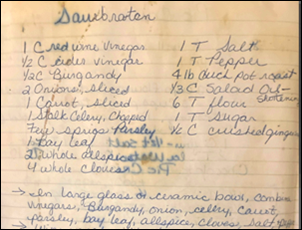 Sauerbraten
1 C red wine vinegar
1/2 C cider vinegar
1/2 C Burgandy
2 Onions, sliced
1 Carrot, sliced
1 Stalk Celery, Chopped
Few sprigs Parsley
1 bay leaf
2 whole allspice
4 whole cloves
1 T Salt
1 T Pepper
4 lb chuck pot roast
1/3 C Salad Oil
6 T flour
1 T Sugar
1/2 C crushed gingers
→ In large glass or ceramic bowl, combine
vinegars, Burgandy, onion, celery, carrot,
parsley, bay leaf, allspice, cloves, salt,